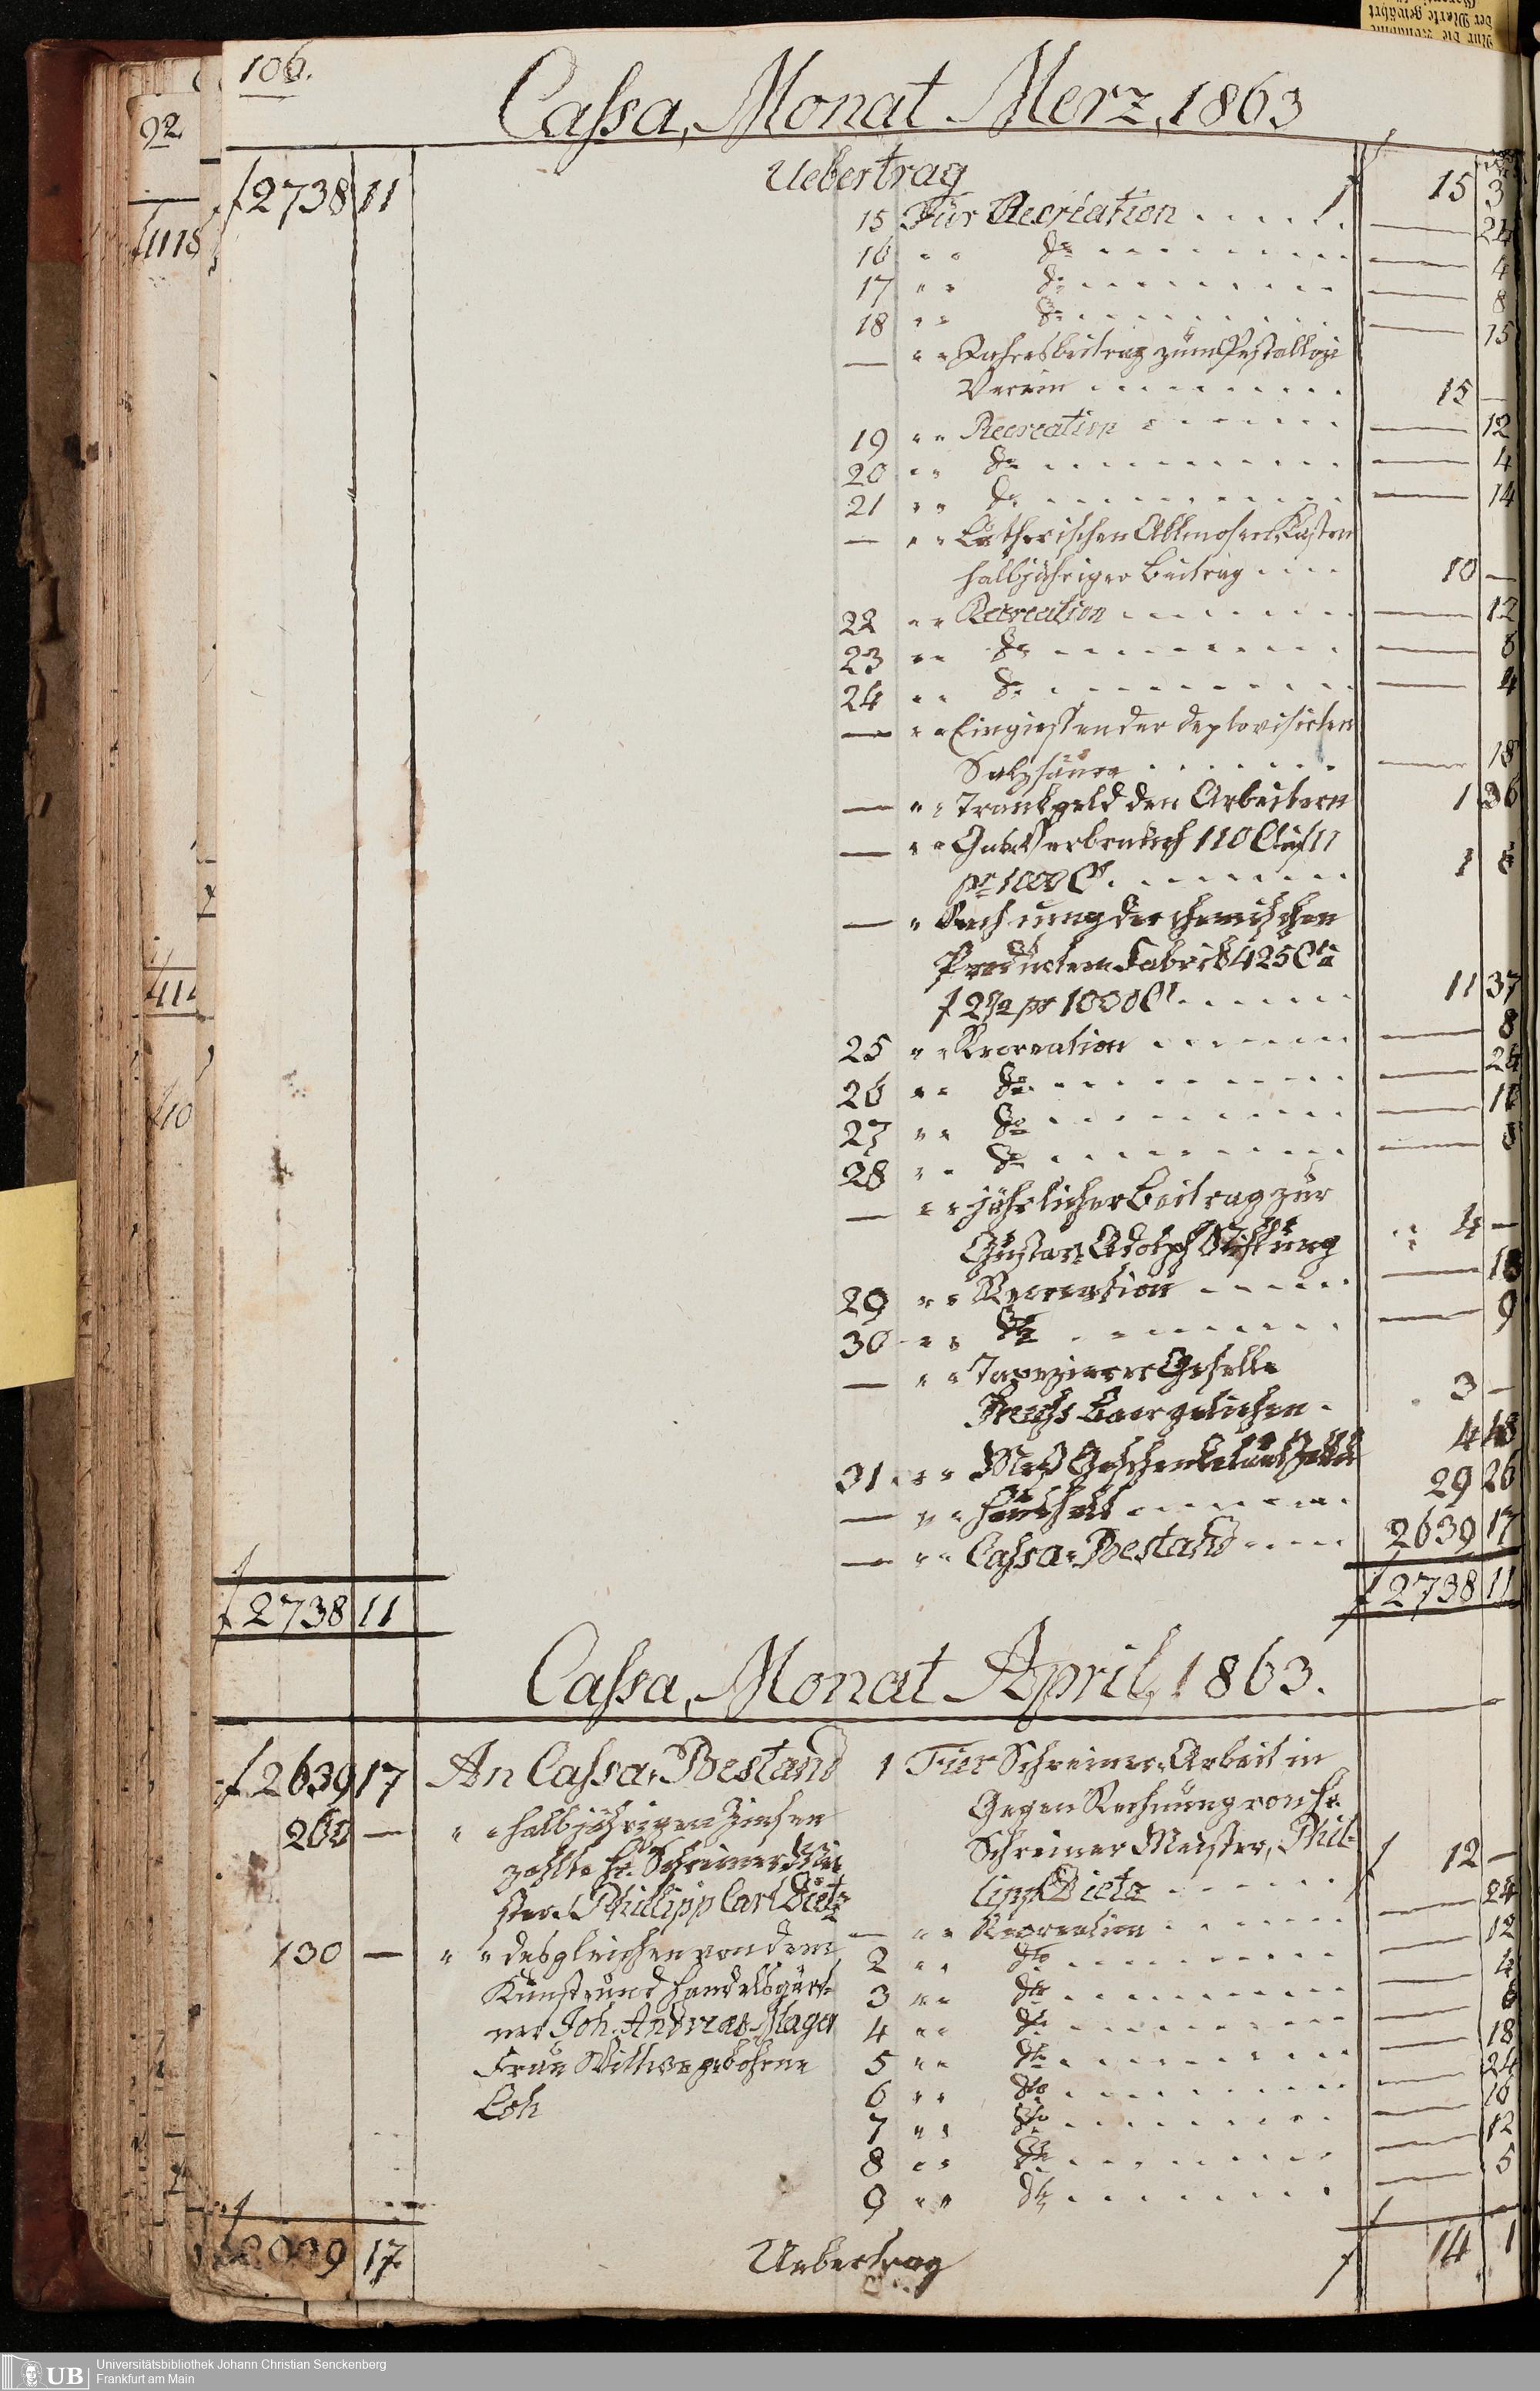 106.
Cassa, Monat Merz, 1863
f 2738 11
Uebertrag f 15 3
15 Für Recreation 24
16 " " do 4
17 " " do 8
18 " " do 15
— " " Jahresbeitrag zum Pestallozi
Verein 15 —
19 " " Recreation 12
20 " " do 4
21 " " do 14
— " " Lutherischen Allmosen Kasten
halbjähriger Beitrag 10 —
22 " " Recreation 12
23 " " do 8
24 " " do 4
— " " Eingiessen der
Salzsäure 18
— " " Trankgeld den Arbeitern 1 36
— " " Gas Verbrauch 110 C
pr 1000 C
— " Rechnung der chemischen
Producten Fabrik 425 C
pr 1000 C 11 37
25 " " Recreation 8
26 " " do 24
27 " " do
28 " " do 8
— " " jährlicher Beitrag zur
Gustav Adolph Stiftung 4 —
29 " " Recreation 18
30 " " do 9
— " " Tapezierer Geselle
3 —
31 " " Meß Geschenke
— " " Haushalt 29 26
— " " Cassa-Bestand 2639 17
f 2738 11
f 2738 11
Cassa, Monat April, 1863.
f 2639 17 An Cassa-Bestand
200 — " " halbjährigen Zinsen
zahlte Hr. Schreiner Mei
ster Phillipp Carl Dietz
130 — " " desgleichen von dem
Kunst und Handelsgärt-
ner Joh. Andreas
Frau Wittwe gebohrne
Loh
1 Für Schreiner Arbeit in
Gegen Rechnung von Hr.
Schreiner Meister, Phil-
lipp Dietz f 12 —
— " " Recreation 24
2 " " do 12
3 " " do 4
4 " " do 6
5 " " do 18
6 " " do 24
7 " " do 16
8 " " do 12
9 " " do 5
17
Uebertrag f 14 1
92
UB
Universitätsbibliothek Johann Christian Senckenberg
Frankfurt am Main